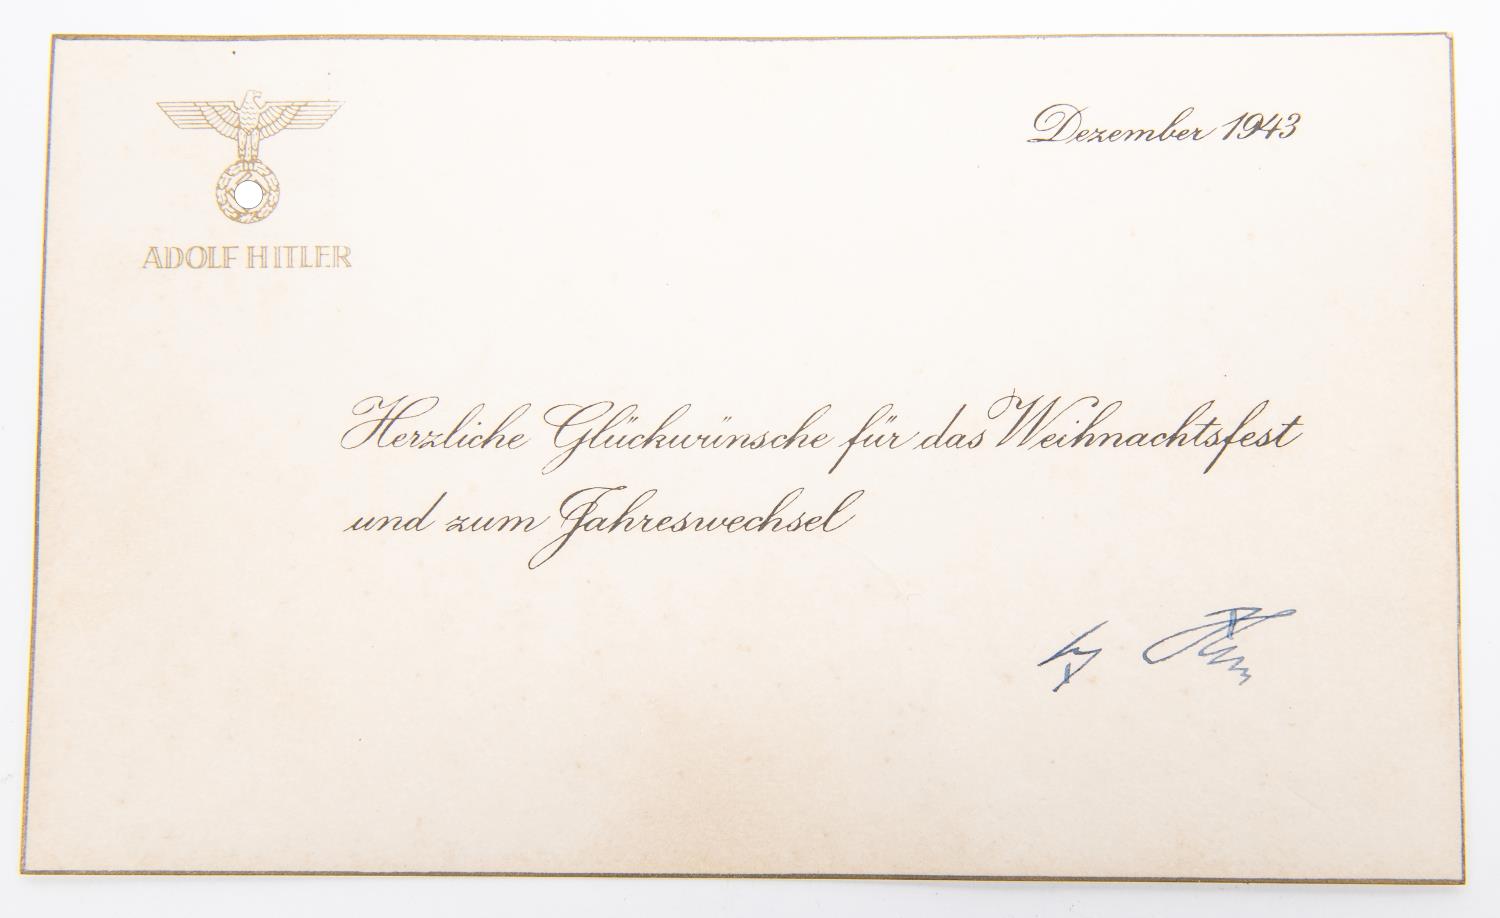 ADOLF HITLER
Dezember 1943
Herzliche Glückwünsche für das Weihnachtsfest
und zum Jahreswechsel